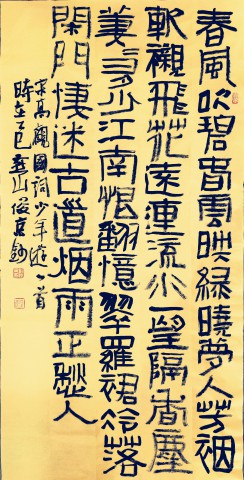 春風吹碧春雲映緑曉夢入芳裀
軟襯飛花遠連流水一望隔香塵
萋々多少江南恨翻憶翠羅裙冷落
閑門悽迷古道烟雨正愁人
宋高觀國詞少年遊一首
時在乙巳燕山俊京鈔